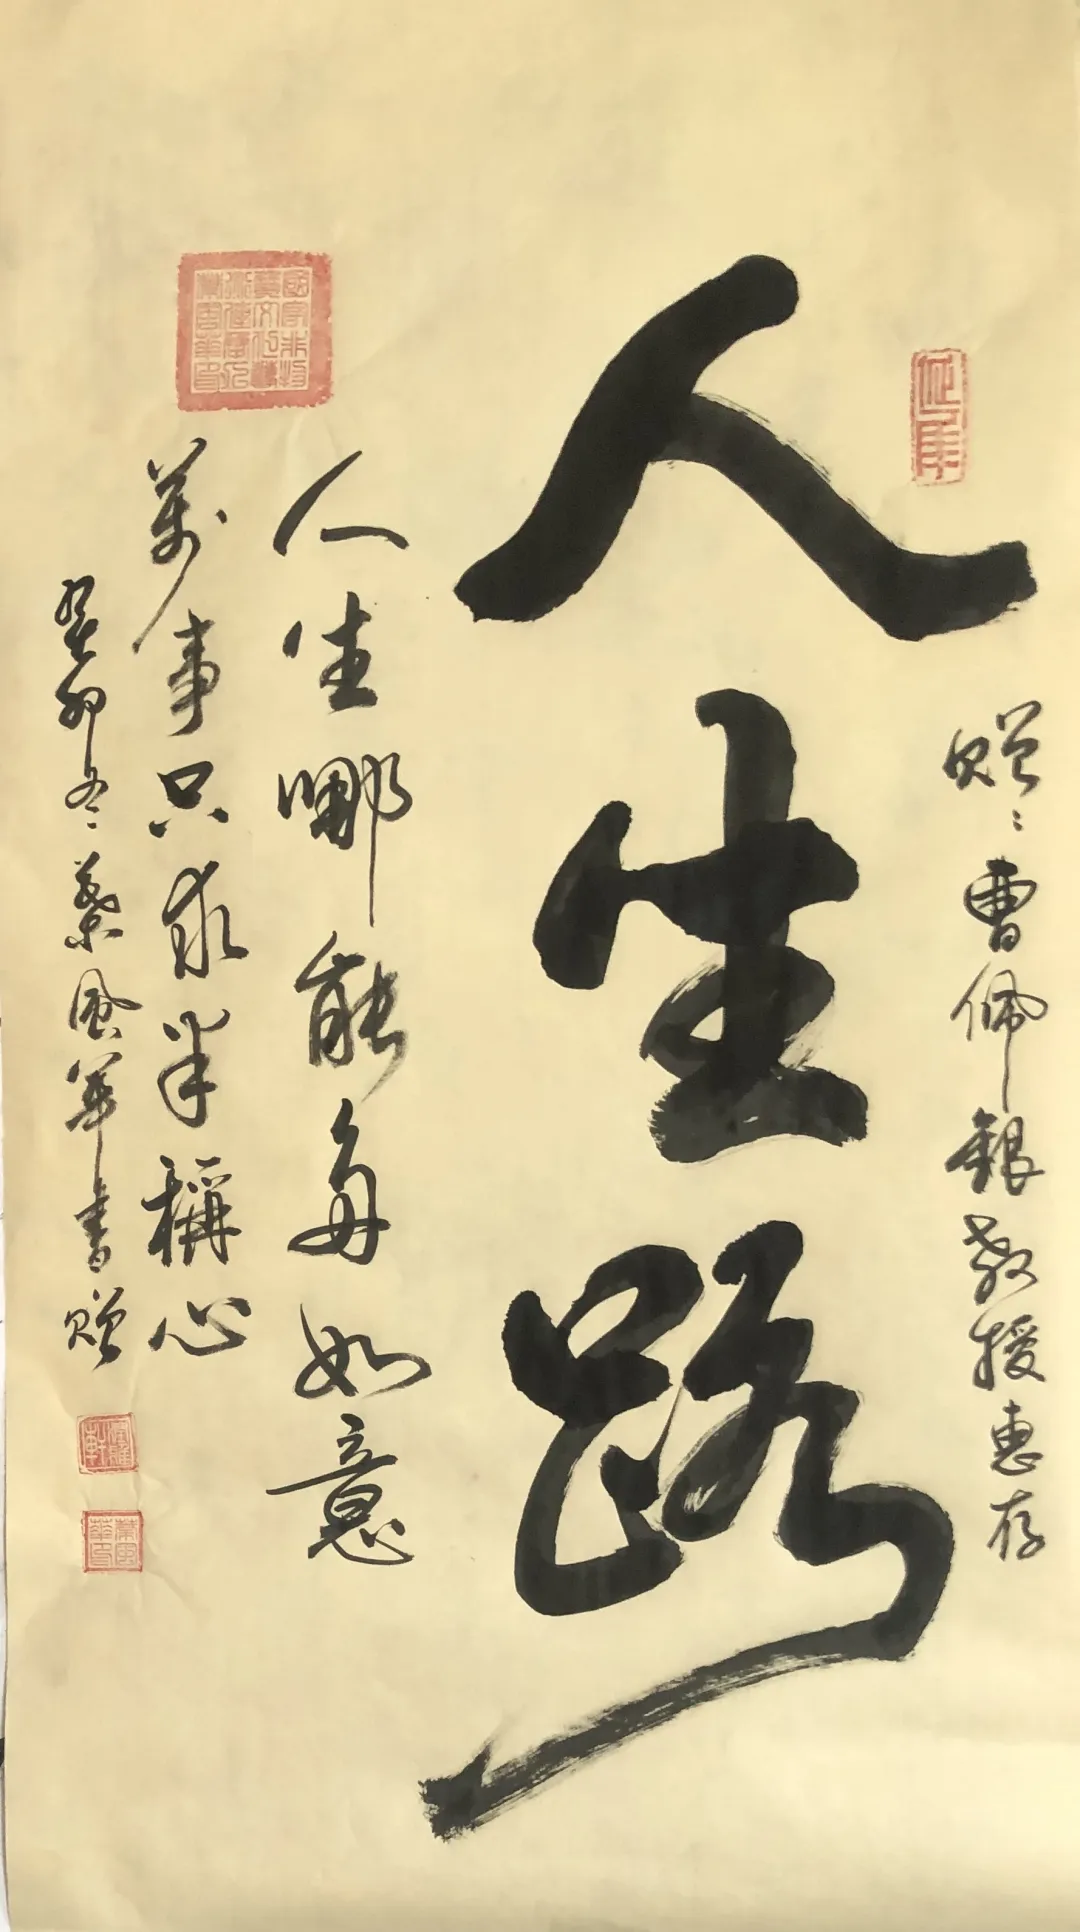 赠:曹佩銀教授惠存
人生路
人生哪能多如意
萬事只求半稱心
癸卯冬風華書赠